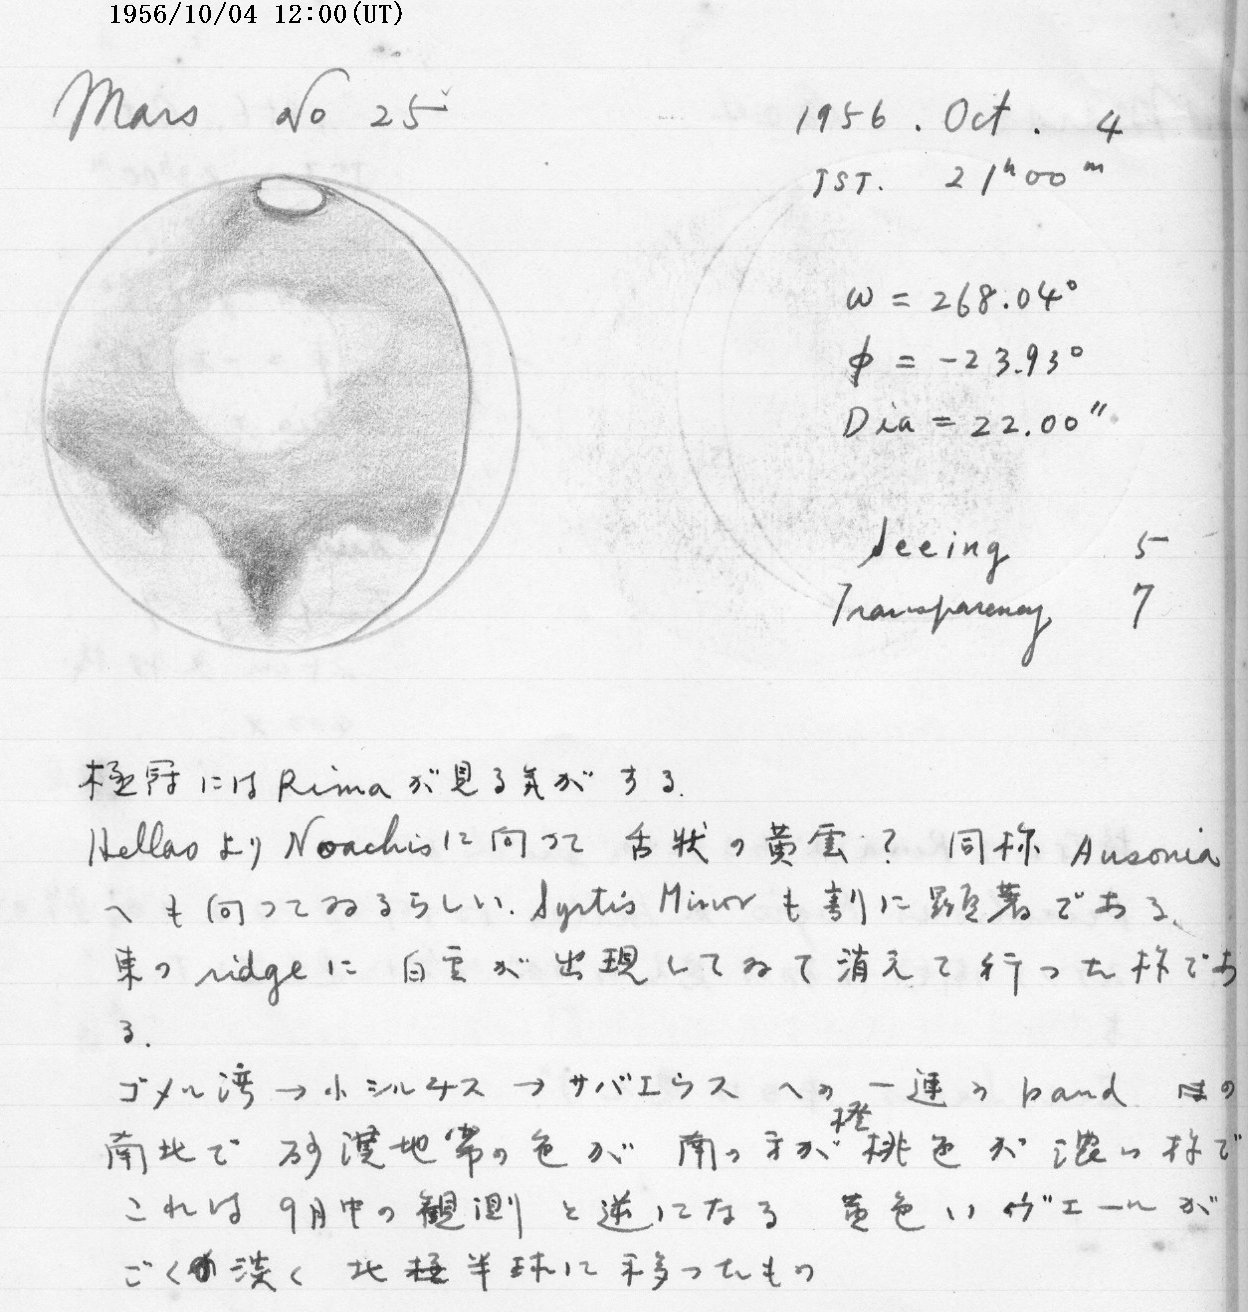 1956/10/04 12:00(UT)
Mars No 25
1956. Oct. 4
JST. 21h00m
ω = 268.04°
φ = -23.93°
Dia = 22.00"
Seeing 5
Transparency 7
極冠には Rima が見る気がする.
Hellas より Noachis に向って 舌状の黄雲? 同様 Ausonia
へも向ってゐるらしい. Syrtis Minor も割に顕著である、
東の ridge に 白雲が出現してゐて消えて行った様であ
る.
ゴメル湾→小シルチス→サバエウス への一連の band の
南北で 砂漠地帯の色が 南の方が橙桃色が濃い様で
これは 9月中の観測と逆になる 黄色いヴエールが
ごく淡く 北極半球に移ったもの